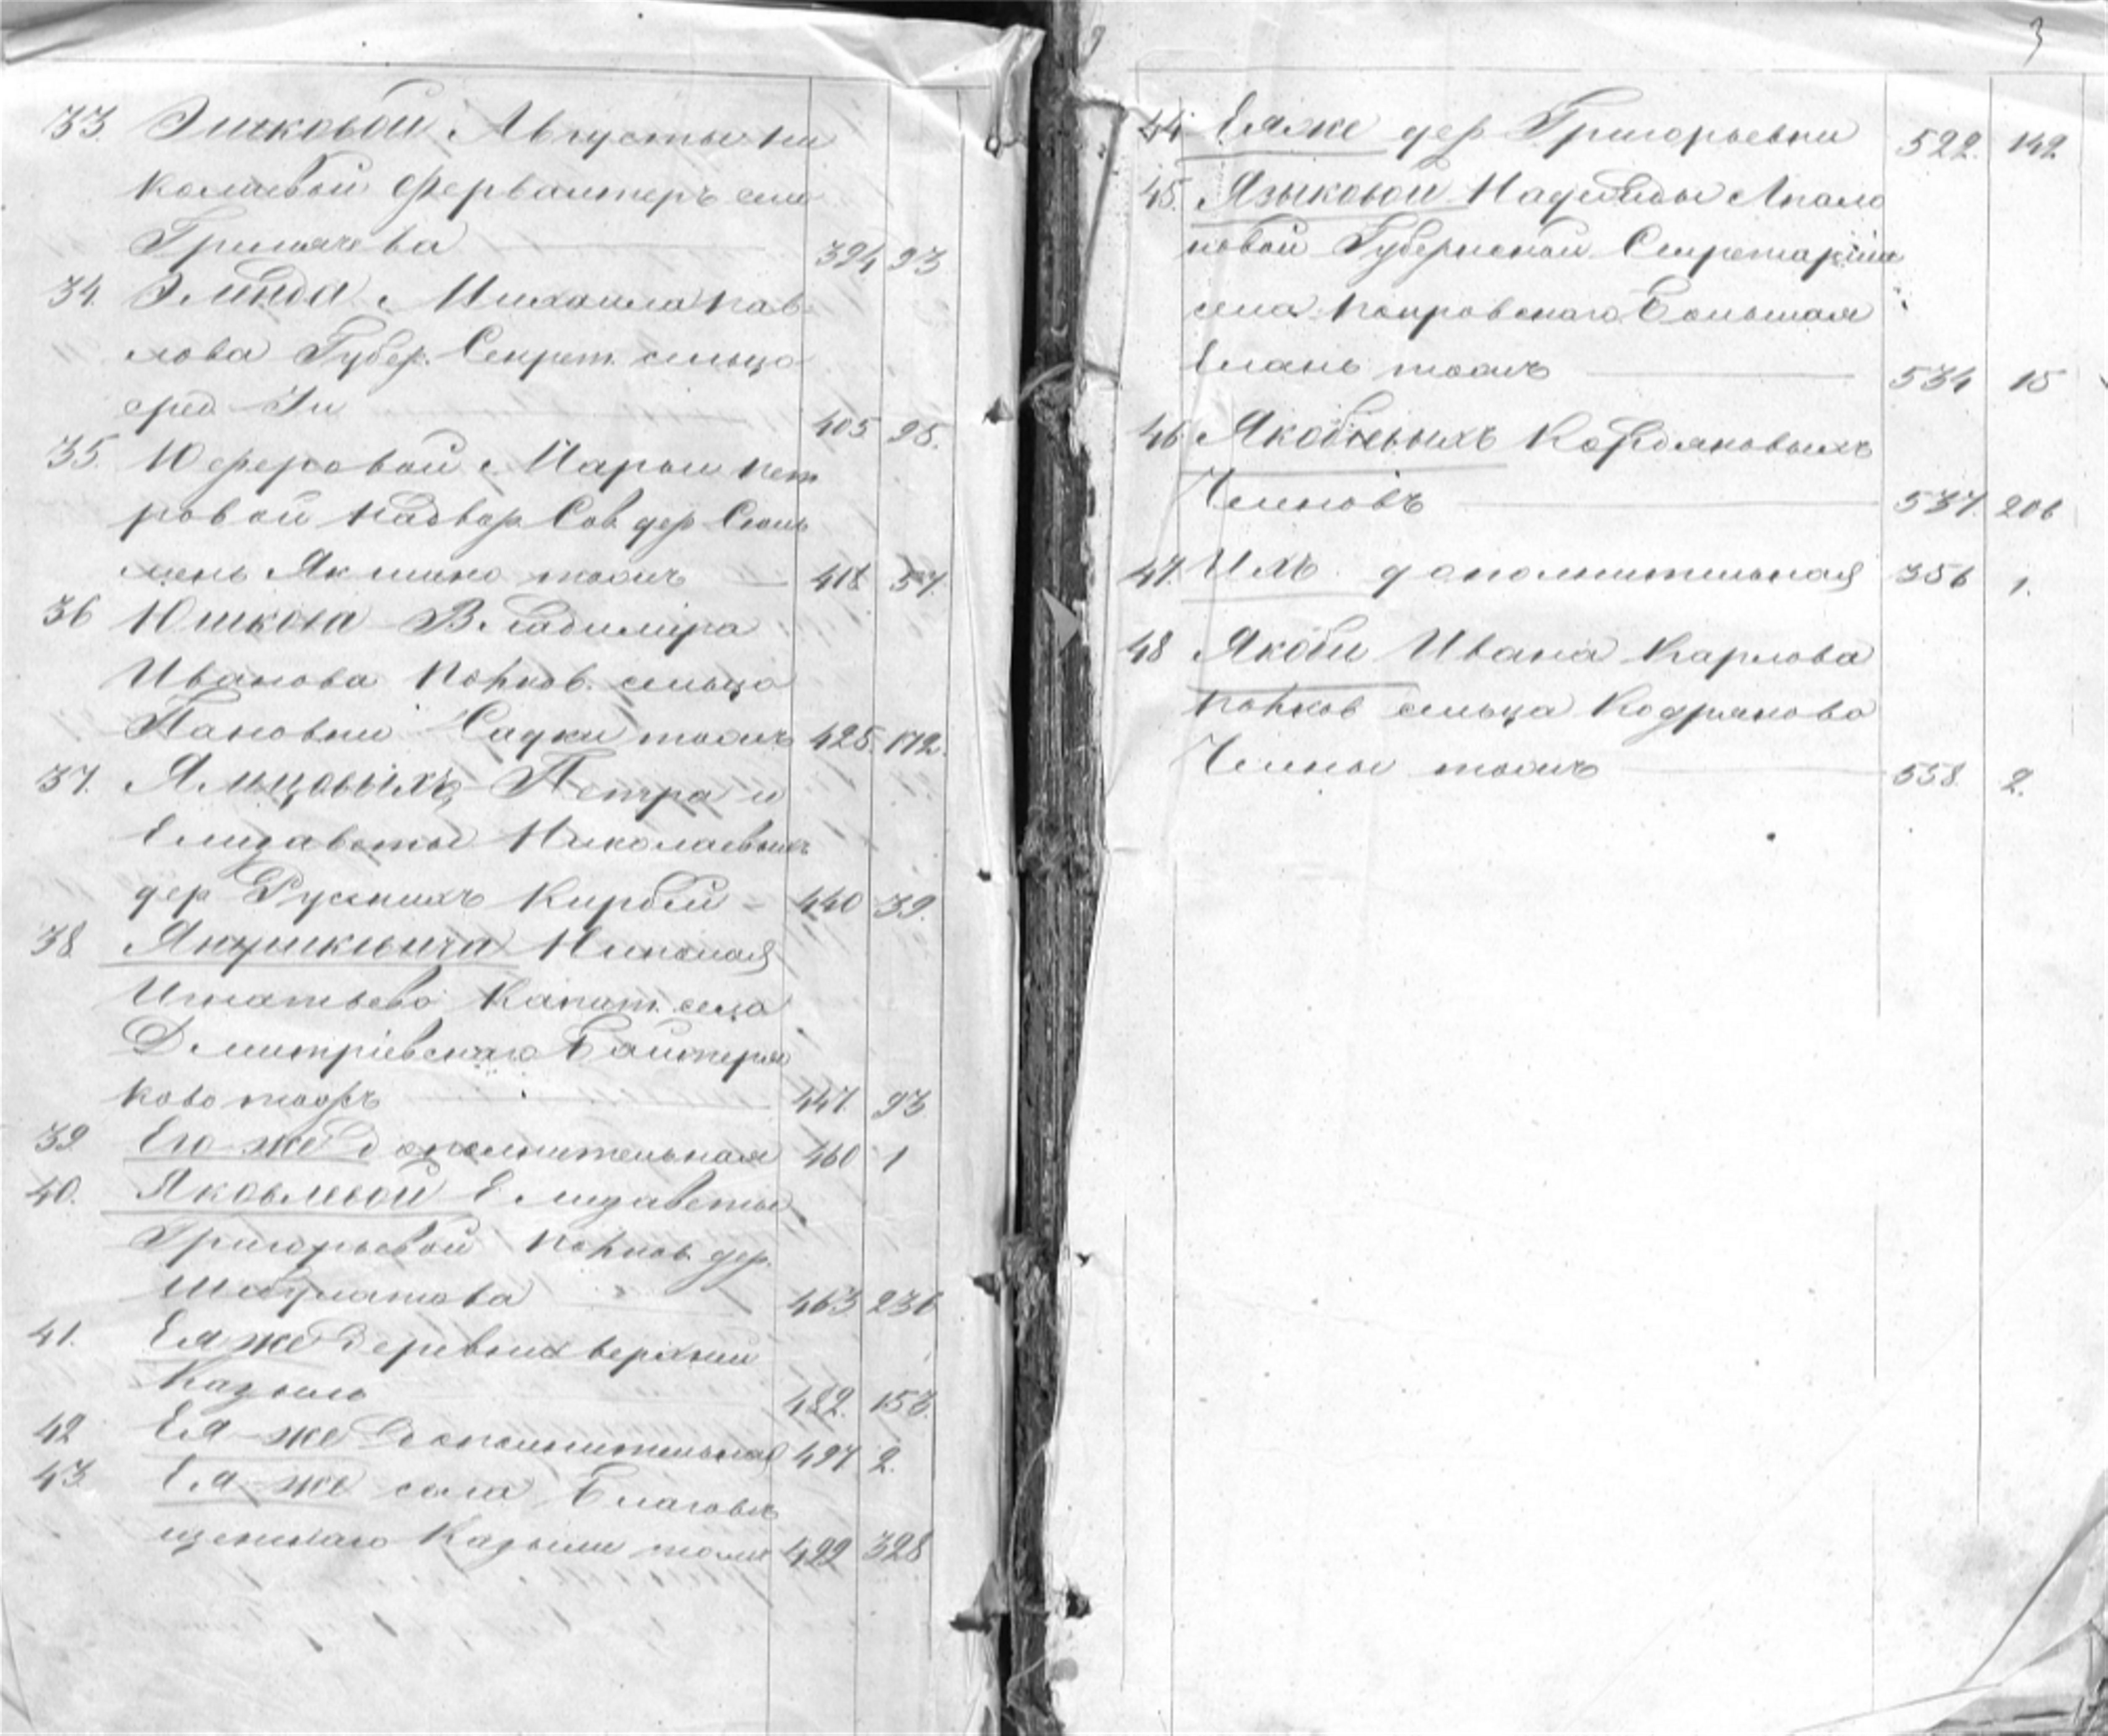 33. Эиковой Августы Ни
колаевой Фервалтеръ села
394 93
34. Михаила Пав
лова Губер. Секрет. сельцо
405 95.
35. Юферовой Марьи Пет
ровой Надвор Сов дер Сюнь
тожъ 418 57.
36 Юшкова Владиміра
Иванова Полков. сельцо
Пановки Садки тожъ 425. 172.
37. Петра и
Елизаветы Николаевыхъ
дер Русскихъ Кирбей 440 39.
38 Янушкевича Николая
Игнатьева Капит. село
Дмитріевскаго
ково тожъ 447. 93
39. Его-же дополнительная 460 1
40. Яковлевой Елизаветы
Григорьевой Полков. дер.
463 236
41. Ея же деревни верхній
Казыль 482. 153.
42 Ея-же Дополнительная 497 2.
43 Ея-же села Благовѣ
щенскаго Казыли тожъ 499 328
3
44 Ея же дер Григорьевки 522. 142
45. Языковой Надежды Аполо
новой Губернской Секретарши
села Покровскаго Большая
Елань тожъ 534 15
46
Челновъ 537. 206
47. Ихъ дополнительная 356 1.
48 Якоби Ивана Карлова
Полков сельца Кодряково
Челны тожъ 558. 2.